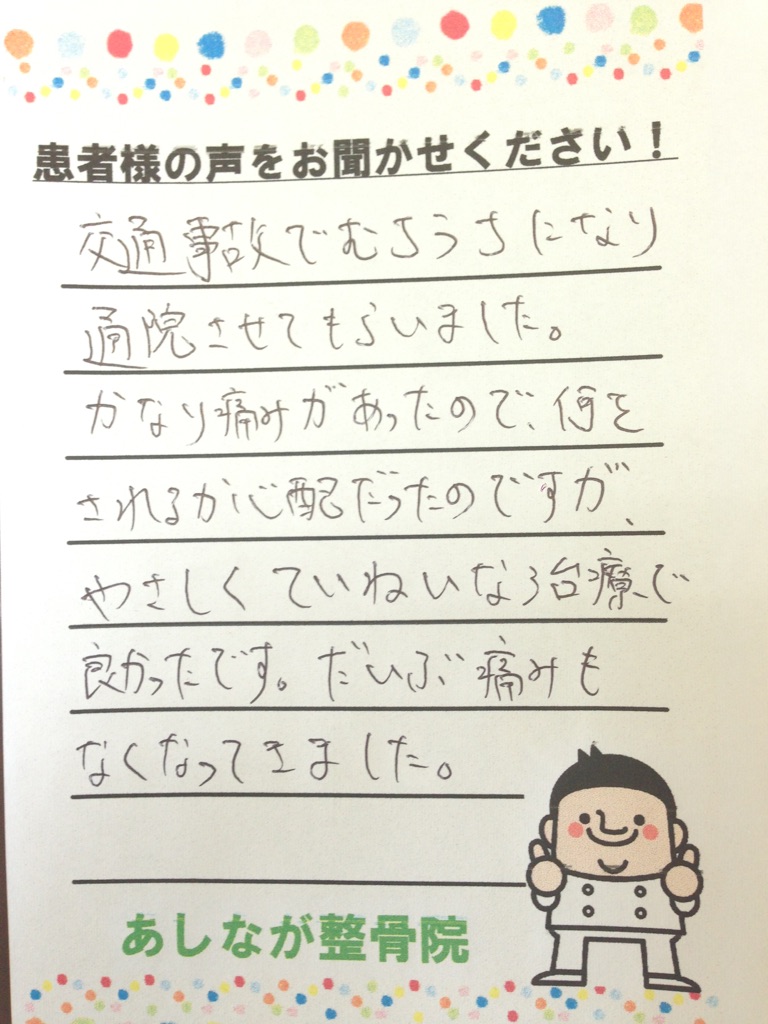 患者様の声をお聞かせください！
交通事故でむちうちになり
通院させてもらいました。
かなり痛みがあったので、何を
されるか心配だったのですが、
やさしくていねいな治療で
良かったです。だいぶ痛みも
なくなってきました。
あしなが整骨院